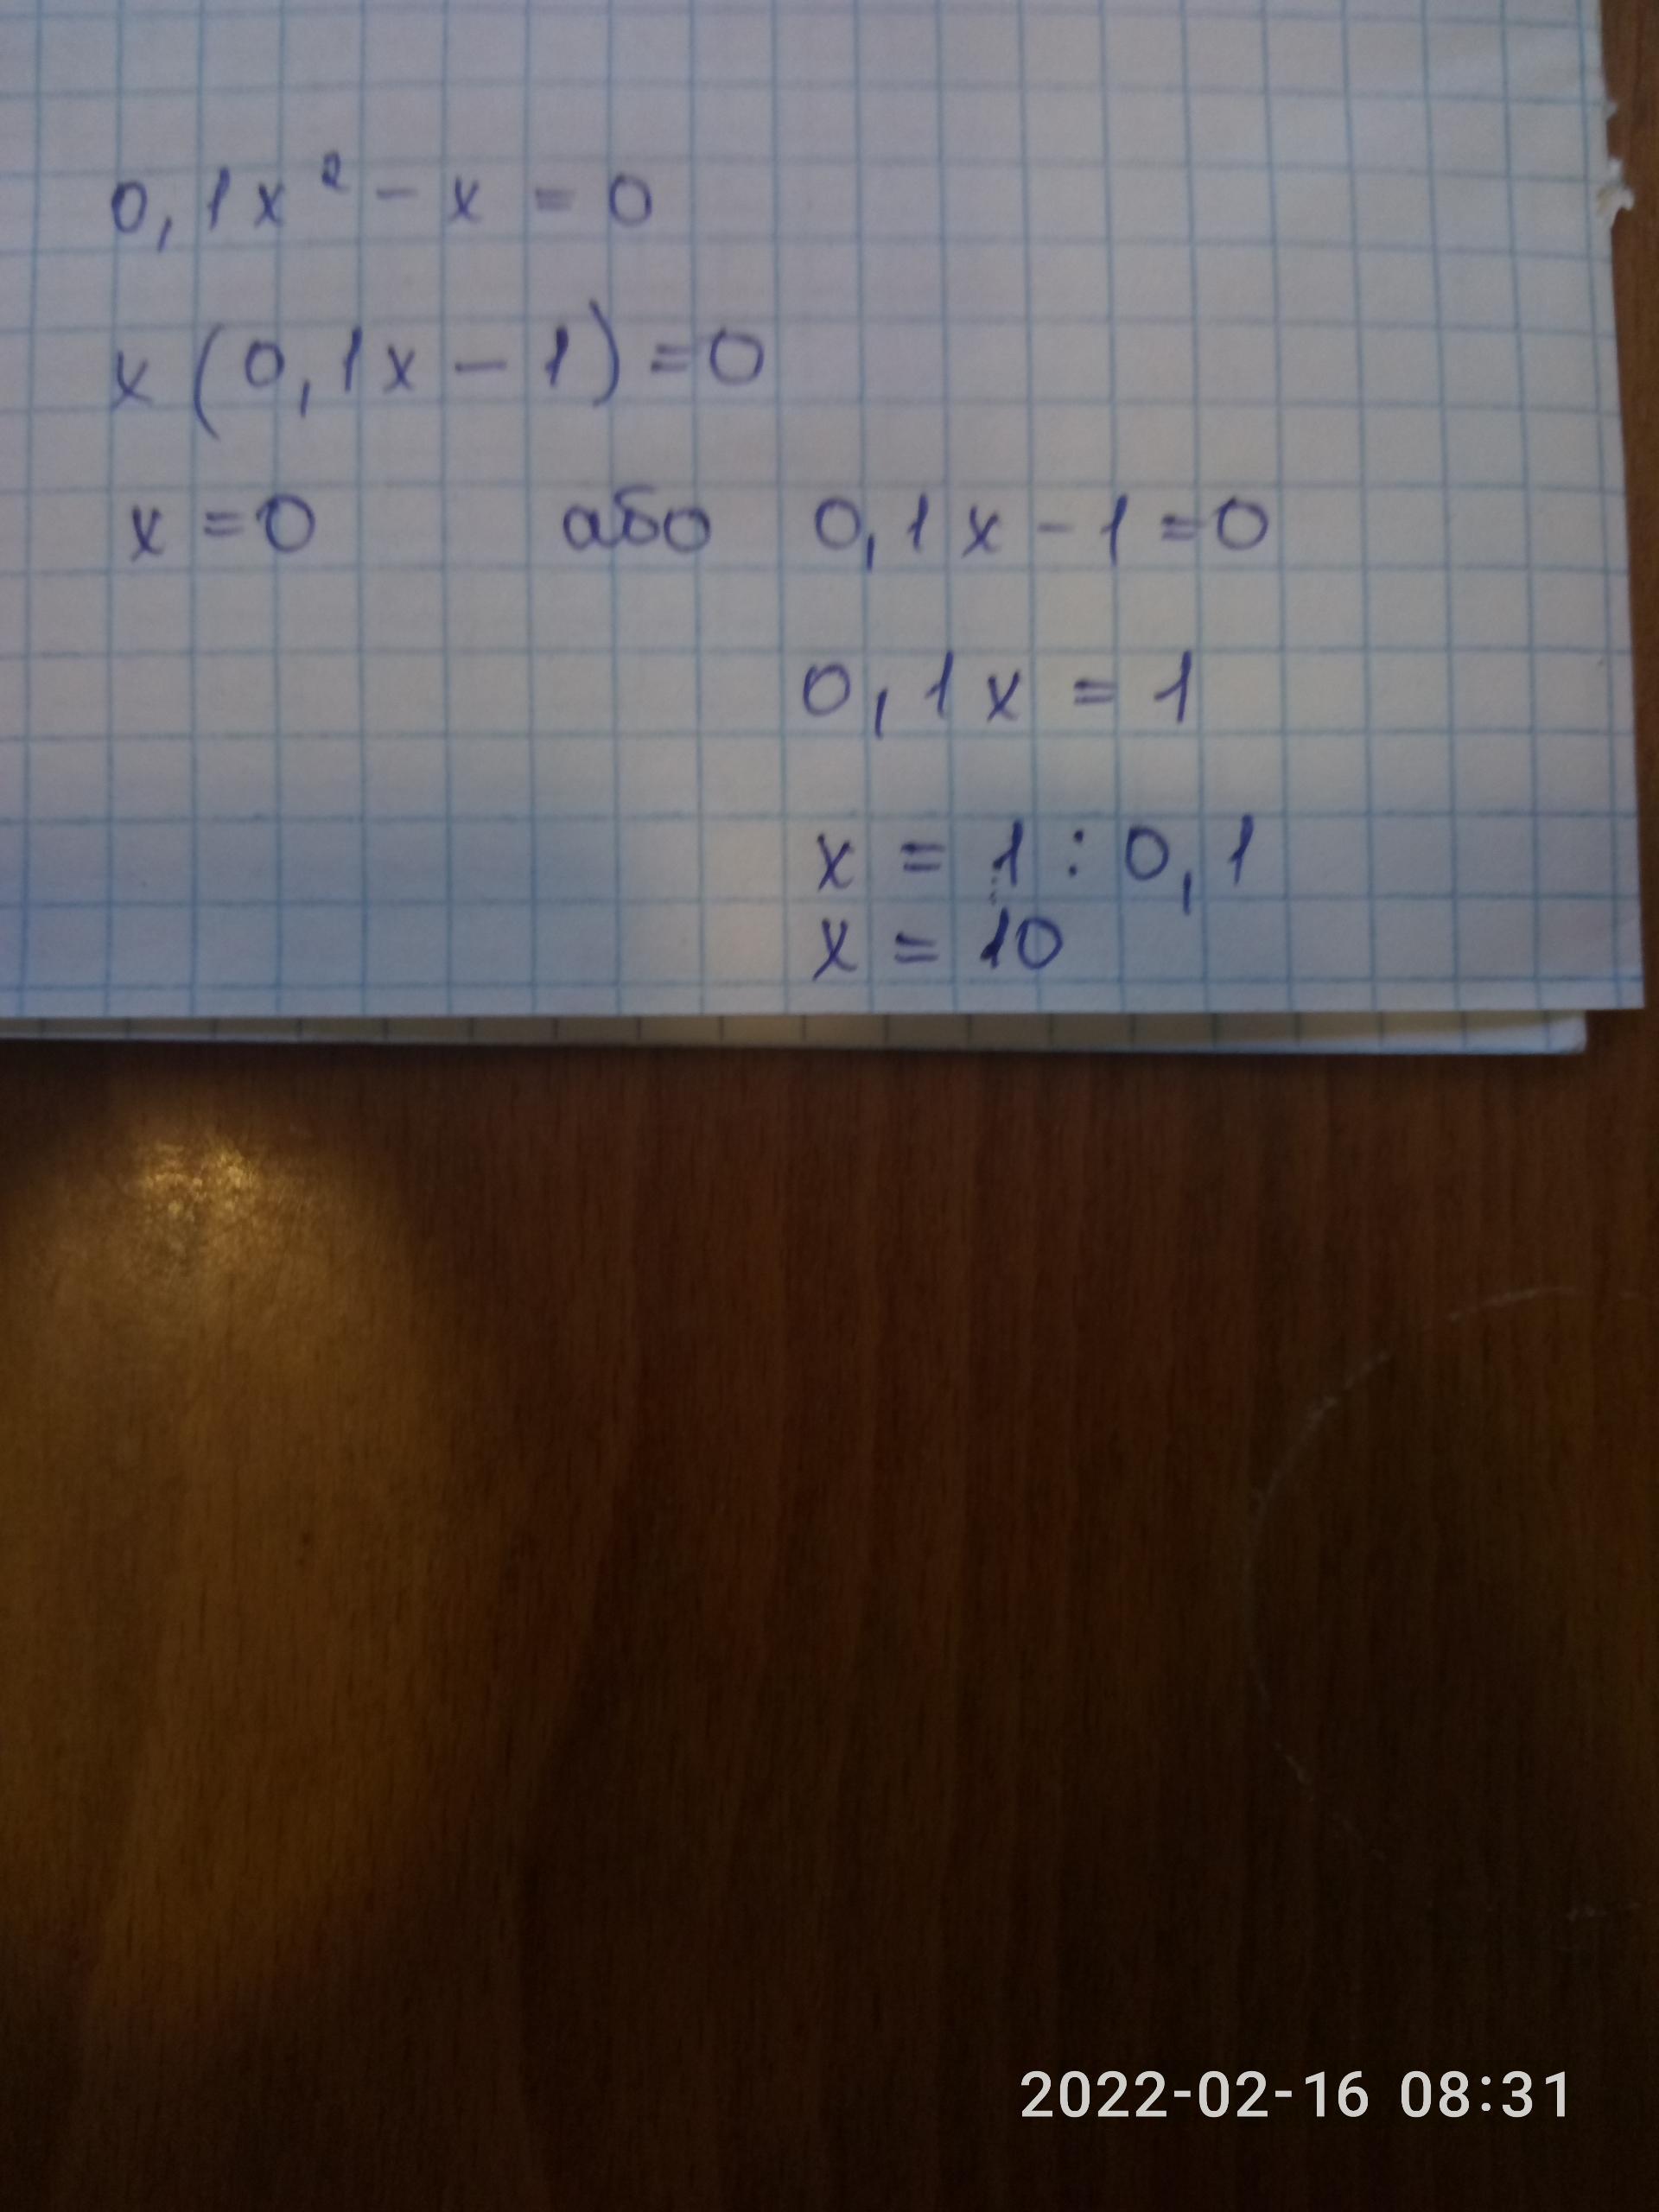 0,1x² - x = 0
x(0,1x - 1) = 0
x = 0 або 0,1x - 1 = 0
0,1x = 1
x = 1 : 0,1
x = 10
2022-02-16 08:31